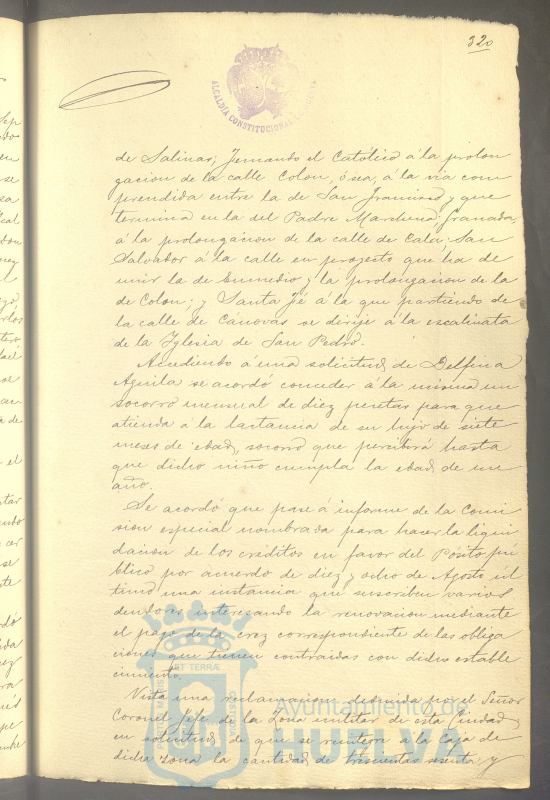 320
ALCALDÍA CONSTITUCIONAL
de Salinas; Fernando el Católico á la prolon
gacion de la calle Colon, ó sea, á la via com
prendida entre la de San Francisco y que
termina en la del Padre Marchena; Granada,
á la prolongacion de la calle de Cala; San
Salvador á la calle en proyecto que ha de
unir la de Enmedio y la prolongacion de la
de Colon; y Santa Fé á la que partiendo de
la calle de Cánovas se dirije á la escalinata
de la Iglesia de San Pedro.
Accediendo á una solicitud de Delfina
Aguila se acordó conceder á la misma un
socorro mensual de diez pesetas para que
atienda á la lactancia de su hijo de siete
meses de edad, socorro que percibirá hasta
que dicho niño cumpla la edad de un
año.
Se acordó que pase á informe de la Comi
sion especial nombrada para hacer la liqui
dacion de los créditos en favor del Pósito pú
blico por acuerdo de diez y ocho de Agosto úl
timo una instancia que suscriben varios
deudores interesando la renovacion mediante
el pago de la crez correspondiente de las obliga
ciones que tienen contraidas con dicho estable
cimiento.
Vista una reclamacion deducida por el Señor
Coronel Jefe de la Zona militar de esta Ciudad
en solicitud de que se reintegre á la Caja de
dicha zona la cantidad de trescientas sesenta y
Ayuntamiento de
HUELVA